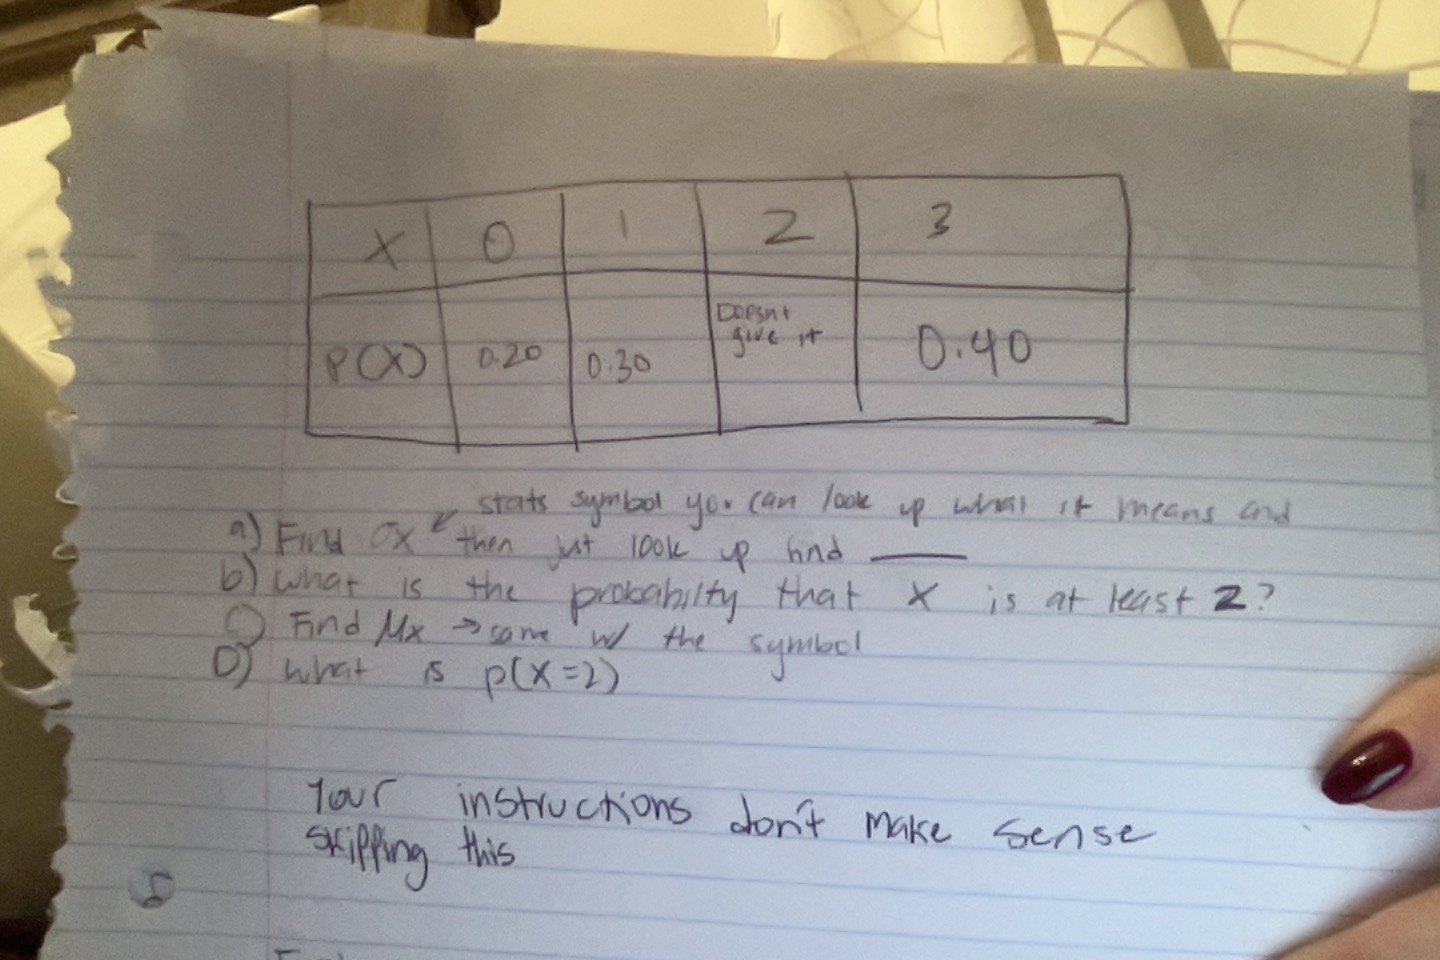 X 0 1 2 3
P(X) 0.20 0.30 Doesnt give it 0.40
stats symbol you can look up what it means and
a) Find σx then just look up find ____
b) what is the probability that X is at least 2?
C) Find Mx → same w/ the symbol
D) what is p(X=2)
Your instructions don't make sense
skipping this